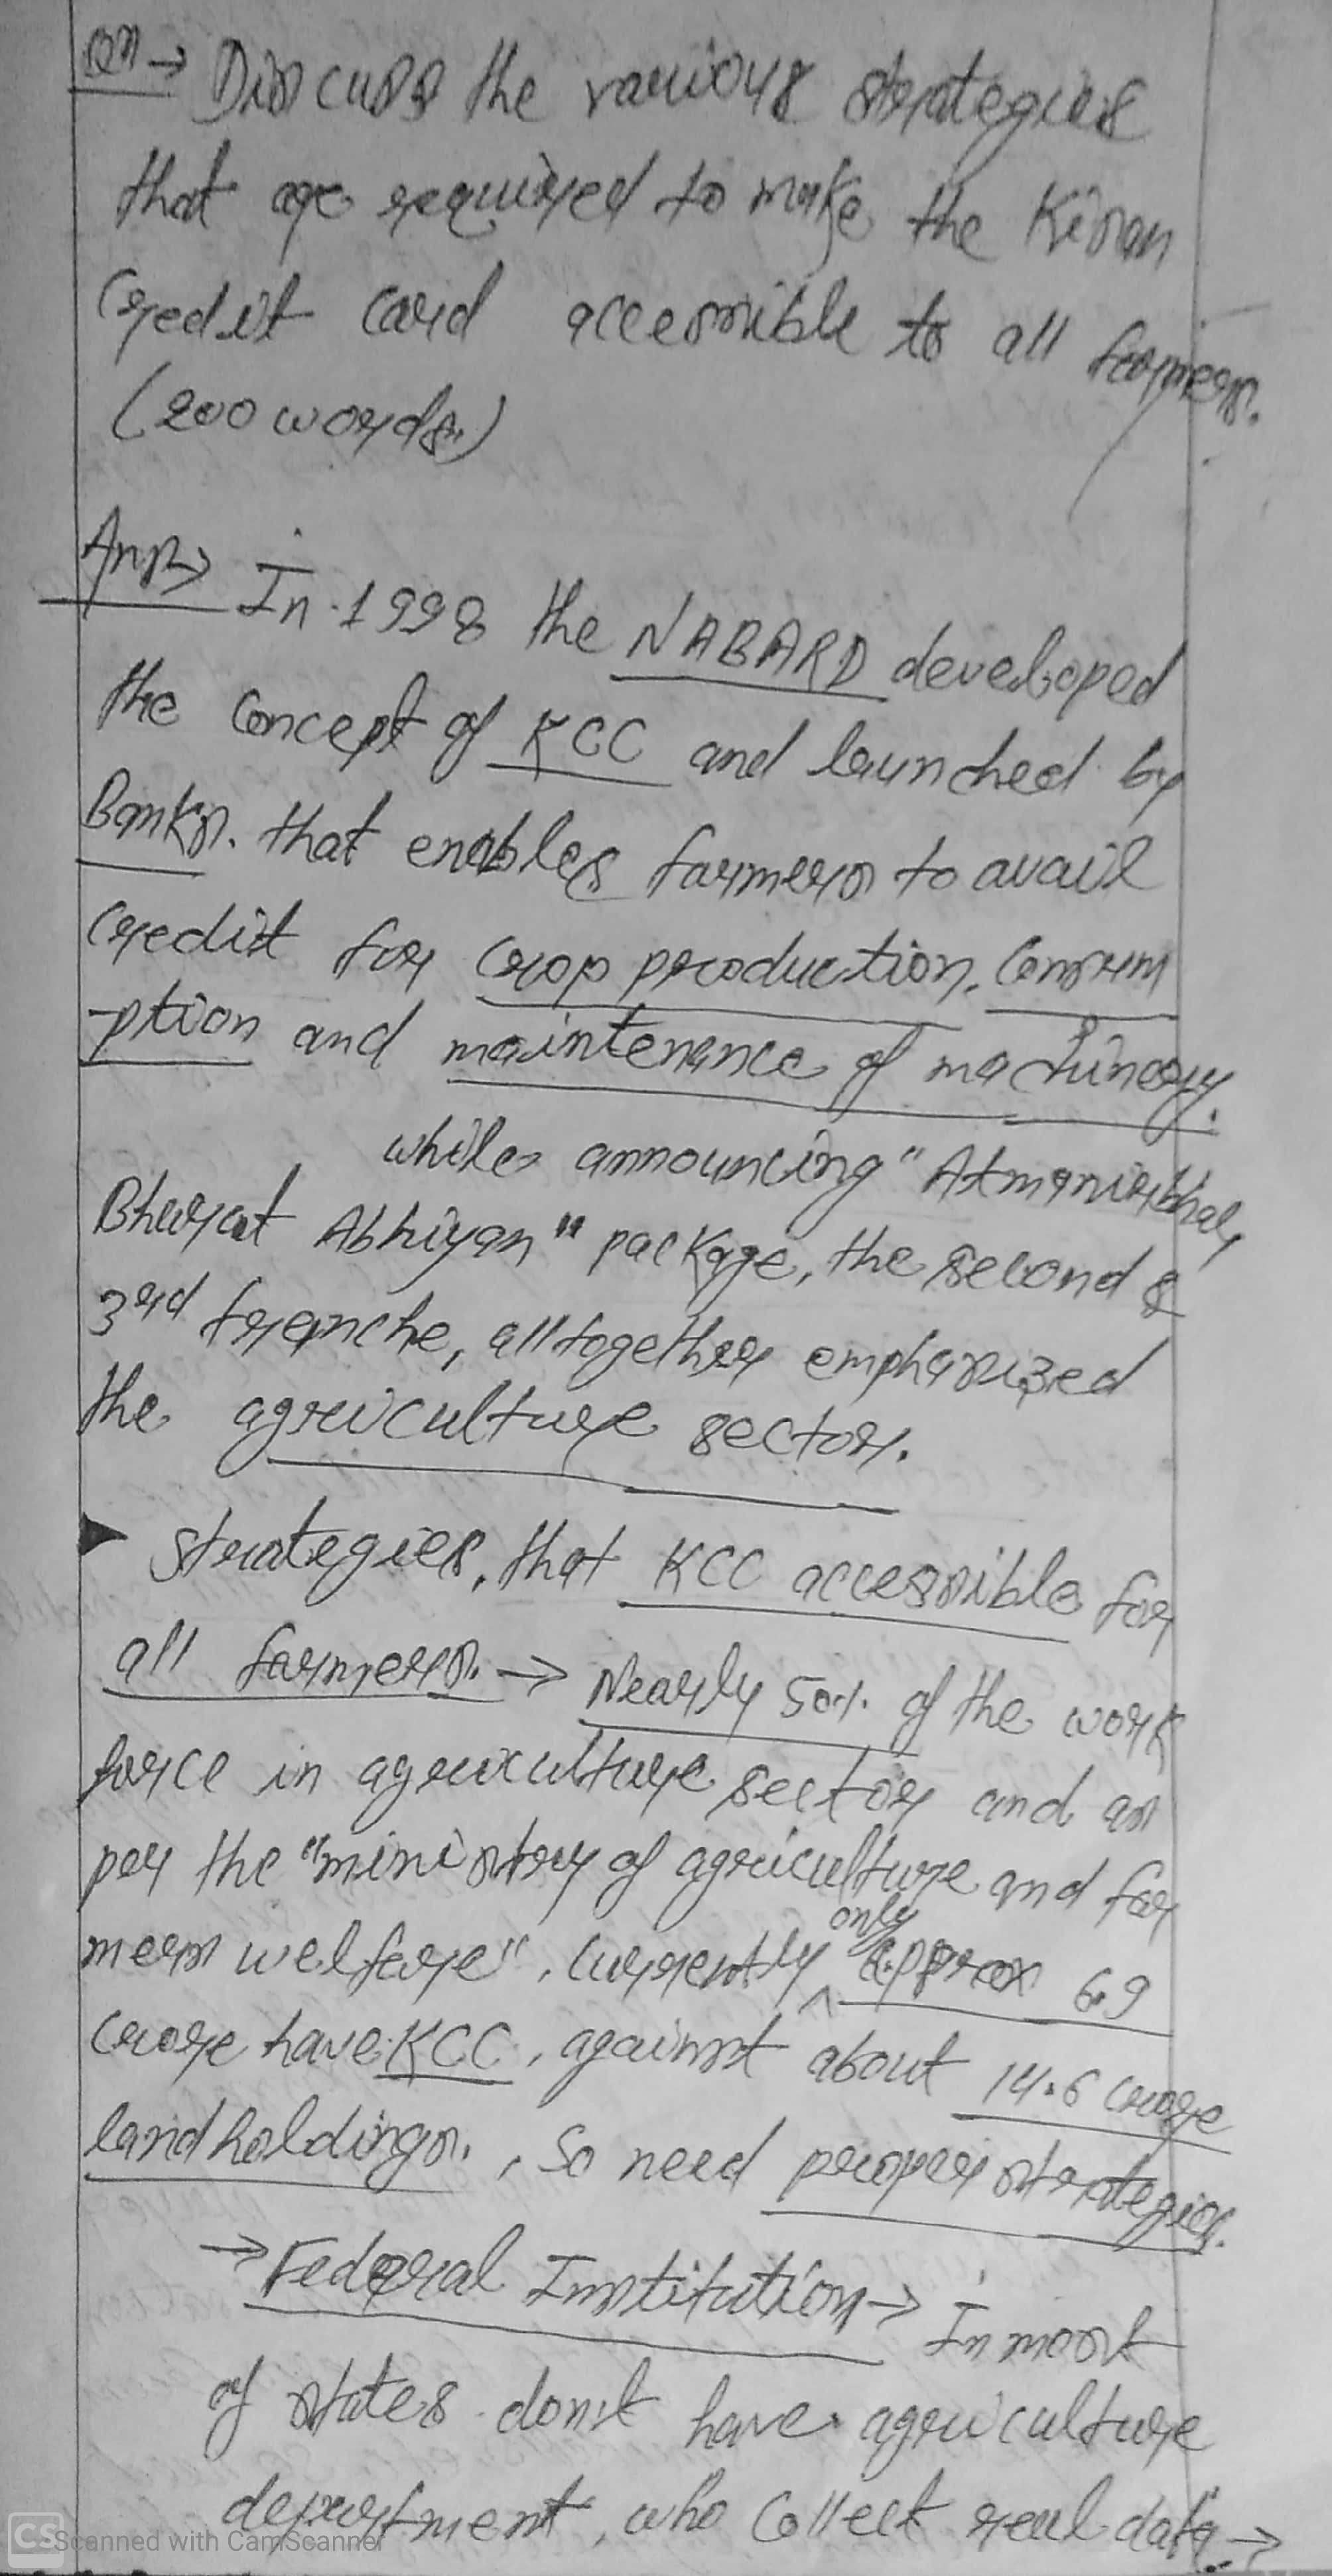 Qn → Discuss the various strategies
that are required to make the Kisan
Credit Card accessible to all farmers.
(200 words)
Ans → In 1998 the NABARD developed
the concept of KCC and launched by
Banks. that enables farmers to avail
credit for crop production, Consum
-ption and maintenance of machinery.
while announcing "Atmanirbhar
Bharat Abhiyan" package, the second &
3rd tranche, alltogether emphasized
the agriculture sector.
► Strategies, that KCC accessible for
all farmers. → Nearly 50% of the work
force in agriculture sector and as
per the "ministry of agriculture and far
mers welfare", currently only approx 6.9
crore have KCC, against about 14.6 crore
landholdings. , So need proper strategies.
→ Federal Institution → In most
of states don't have agriculture
department, who collect real data →
CS Scanned with CamScanner